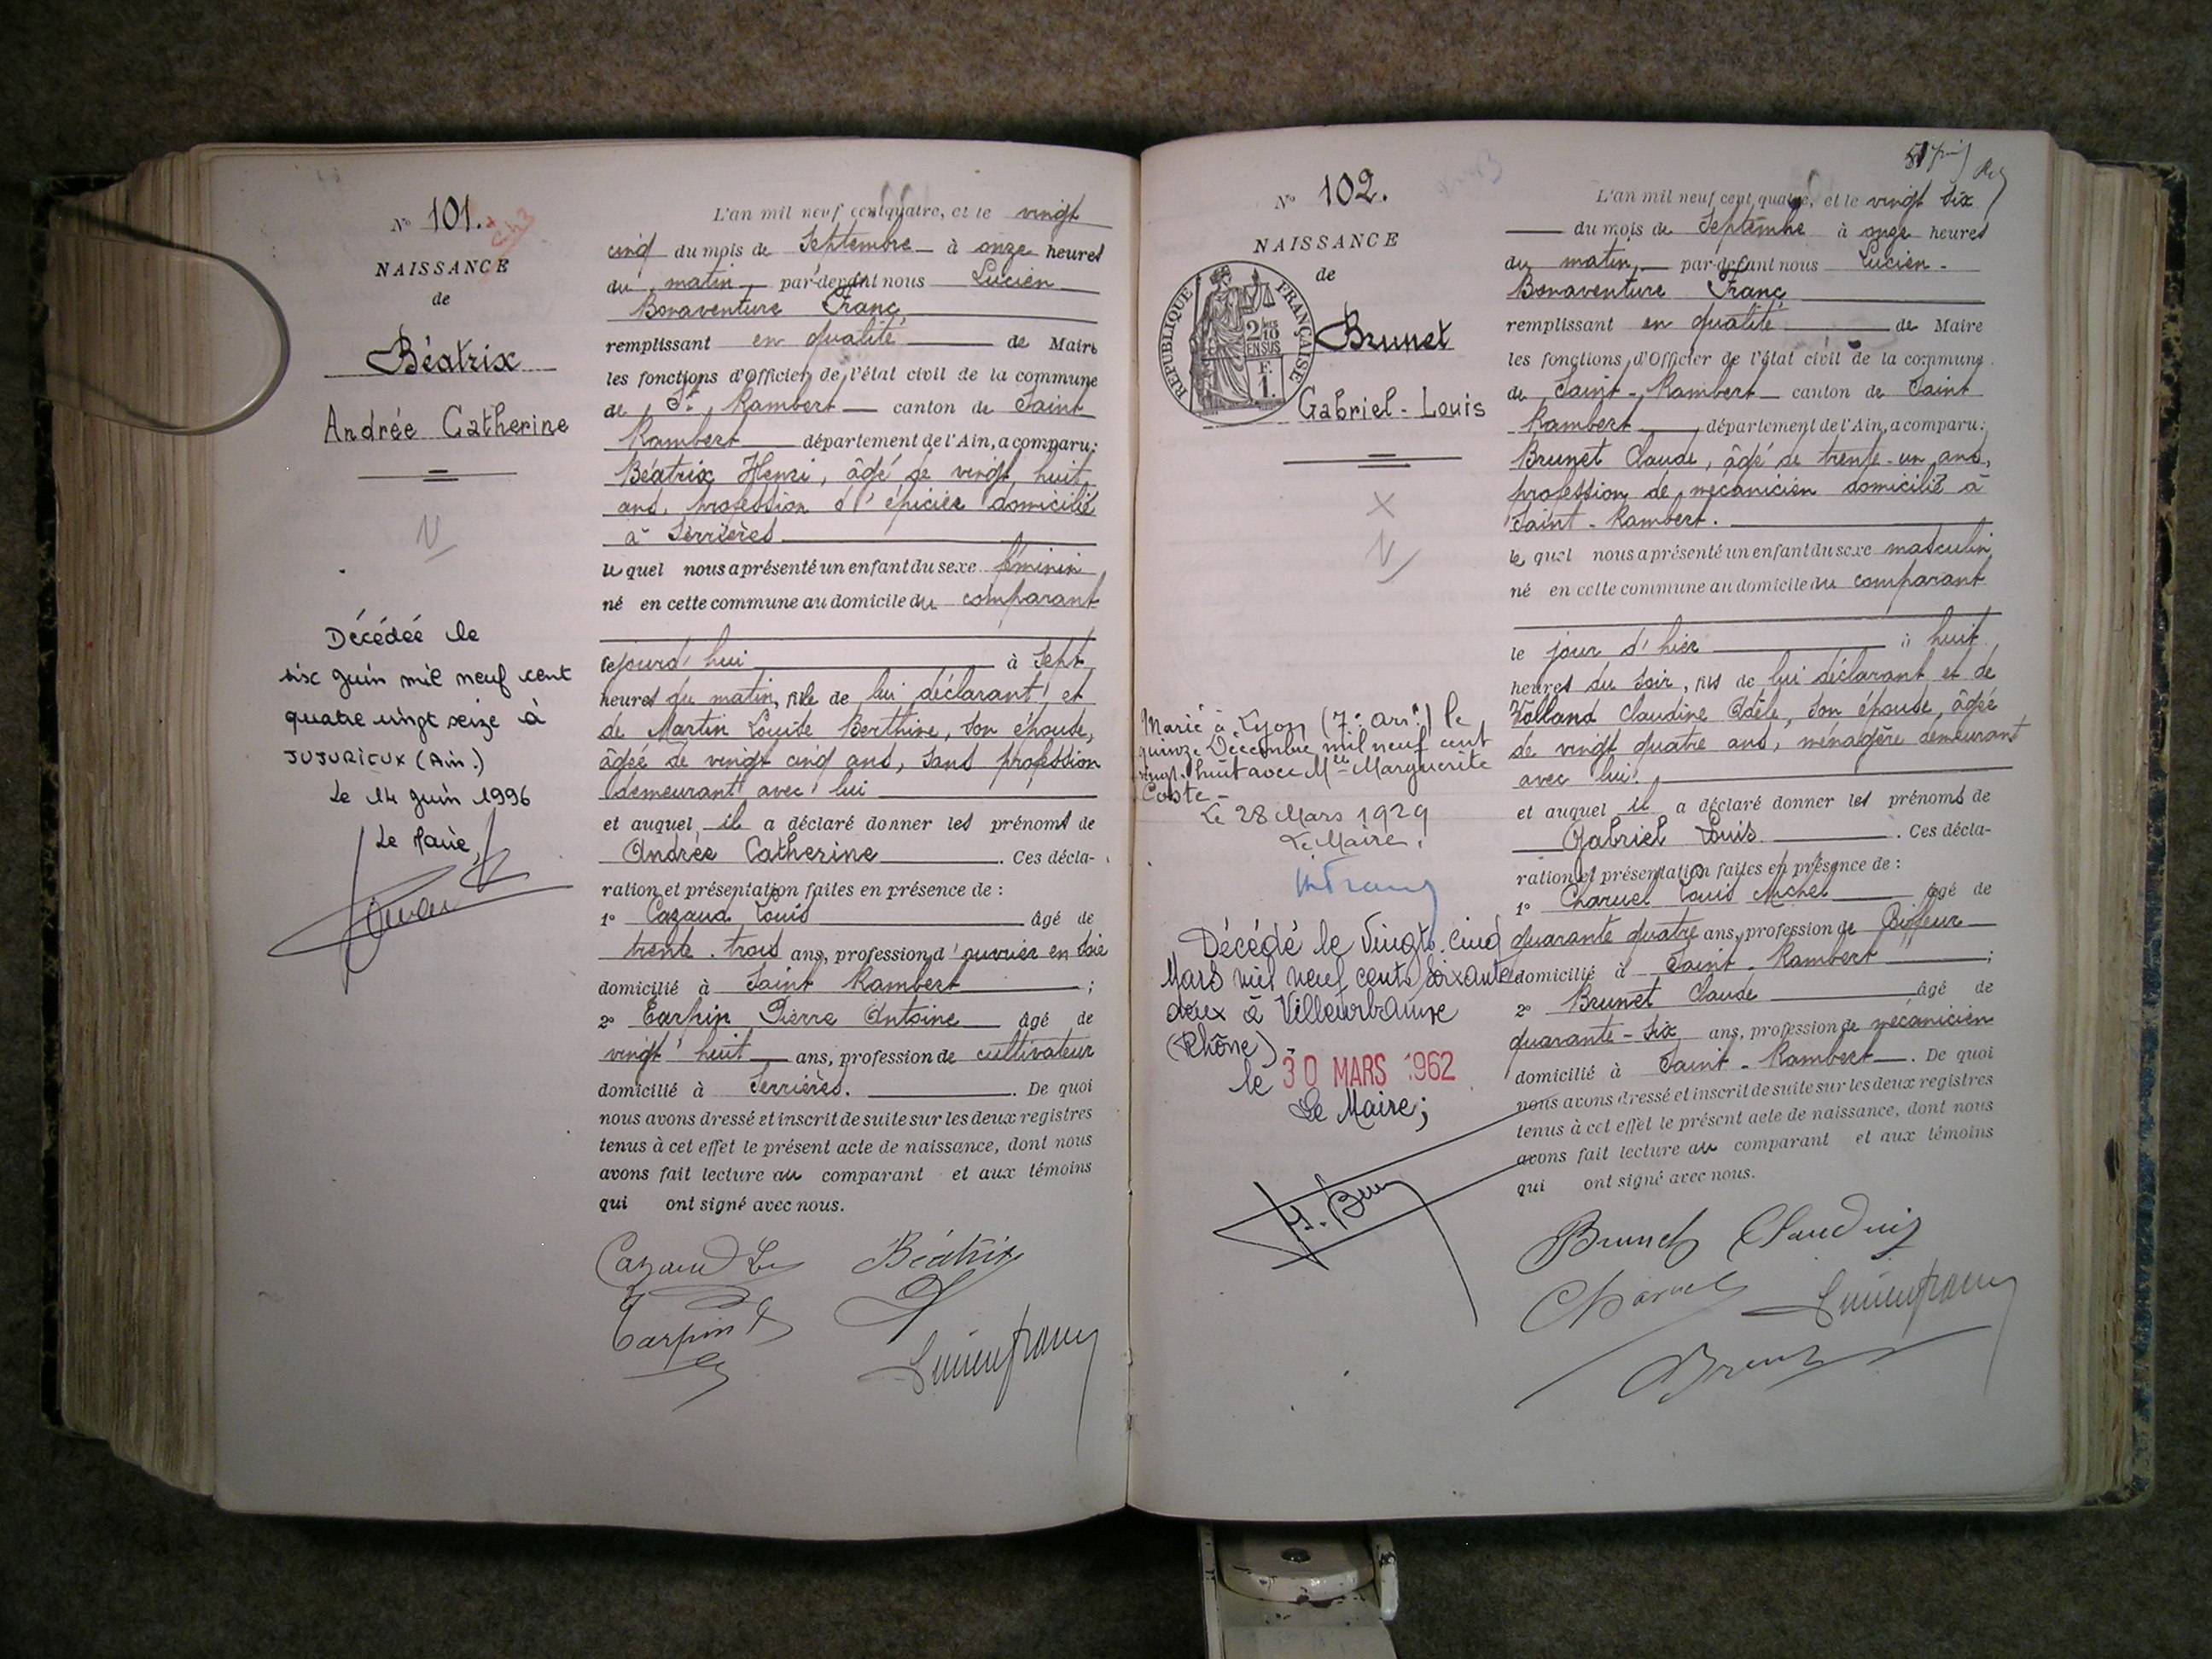 N° 101.
NAISSANCE
de
Béatrix
Andrée Catherine
N
Décédée le
six juin mil neuf cent
quatre vingt seize à
JUJURIEUX (Ain.)
Le 14 juin 1996
Le Maire,
L'an mil neuf cent quatre, et le vingt
cinq du mois de Septembre à onze heures
du matin, par-devant nous Lucien
Bonaventure Franc,
remplissant en qualité de Maire
les fonctions d'Officier de l'état civil de la commune
de St. Rambert canton de Saint
Rambert département de l'Ain, a comparu:
Béatrix Henri, âgé de vingt huit
ans, profession d'épicier domicilié
à Serrières
lequel nous a présenté un enfant du sexe féminin
né en cette commune au domicile du comparant
cejourd'hui à sept
heures du matin, fille de lui déclarant et
de Martin Louise Berthine, son épouse,
âgée de vingt cinq ans, sans profession
demeurant avec lui
et auquel il a déclaré donner les prénoms de
Andrée Catherine. Ces décla-
ration et présentation faites en présence de :
1° Cazaud Louis âgé de
trente-trois ans, profession d'ouvrier en soie
domicilié à Saint Rambert ;
2° Tarpin Pierre Antoine âgé de
vingt huit ans, profession de cultivateur
domicilié à Serrières. De quoi
nous avons dressé et inscrit de suite sur les deux registres
tenus à cet effet le présent acte de naissance, dont nous
avons fait lecture au comparant et aux témoins
qui ont signé avec nous.
Cazaud Béatrix
Tarpin
Lucien franc
N° 102.
NAISSANCE
de
REPUBLIQUE FRANÇAISE
2/10
EN SUS
F.
1.
Brunet
Gabriel-Louis
X
N
Marié à Lyon (7e arrt) le
quinze Décembre mil neuf cent
vingt-huit avec Mlle Marguerite
Coste-
Le 28 Mars 1929
Le Maire,
Décédé le Vingt-cinq
Mars mil neuf cent soixante
deux à Villeurbanne
(Rhône).
le 30 MARS 1962
Le Maire;
L'an mil neuf cent quatre, et le vingt six
du mois de Septembre à onze heures
du matin, par-devant nous Lucien-
Bonaventure Franc
remplissant en qualité de Maire
les fonctions d'Officier de l'état civil de la commune
de Saint-Rambert canton de Saint
Rambert département de l'Ain, a comparu:
Brunet Claude, âgé de trente-un ans,
profession de mécanicien domicilié à
Saint-Rambert.
lequel nous a présenté un enfant du sexe masculin
né en cette commune au domicile du comparant
le jour d'hier à huit
heures du soir, fils de lui déclarant et de
Volland Claudine Adèle, son épouse, âgée
de vingt quatre ans, ménagère demeurant
avec lui.
et auquel il a déclaré donner les prénoms de
Gabriel Louis. Ces décla-
ration et présentation faites en présence de :
1° Charvet Louis Michel âgé de
quarante quatre ans, profession de Coiffeur
domicilié à Saint-Rambert ;
2° Brunet Claude âgé de
quarante-six ans, profession de mécanicien
domicilié à Saint-Rambert. De quoi
nous avons dressé et inscrit de suite sur les deux registres
tenus à cet effet le présent acte de naissance, dont nous
avons fait lecture au comparant et aux témoins
qui ont signé avec nous.
Brunet
Charvet Lucien franc
Brunet